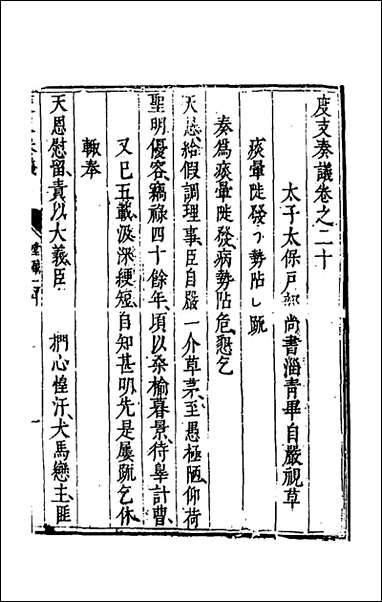 度支奏議卷之二十
太子太保戶部尚書淄青畢自嚴視草
痰暈陡發病勢阽危疏
奏爲痰暈陡發病勢阽危懇乞
天恩給假調理事臣自嚴一介草茅至愚極陋仰荷
聖明優容竊祿四十餘年頃以桑榆暮景待舉計曹
又已五載汲深綆短自知甚明先是屢疏乞休
輙奉
天恩慰留責以大義臣 捫心惶汗犬馬戀主匪
堂稿
一